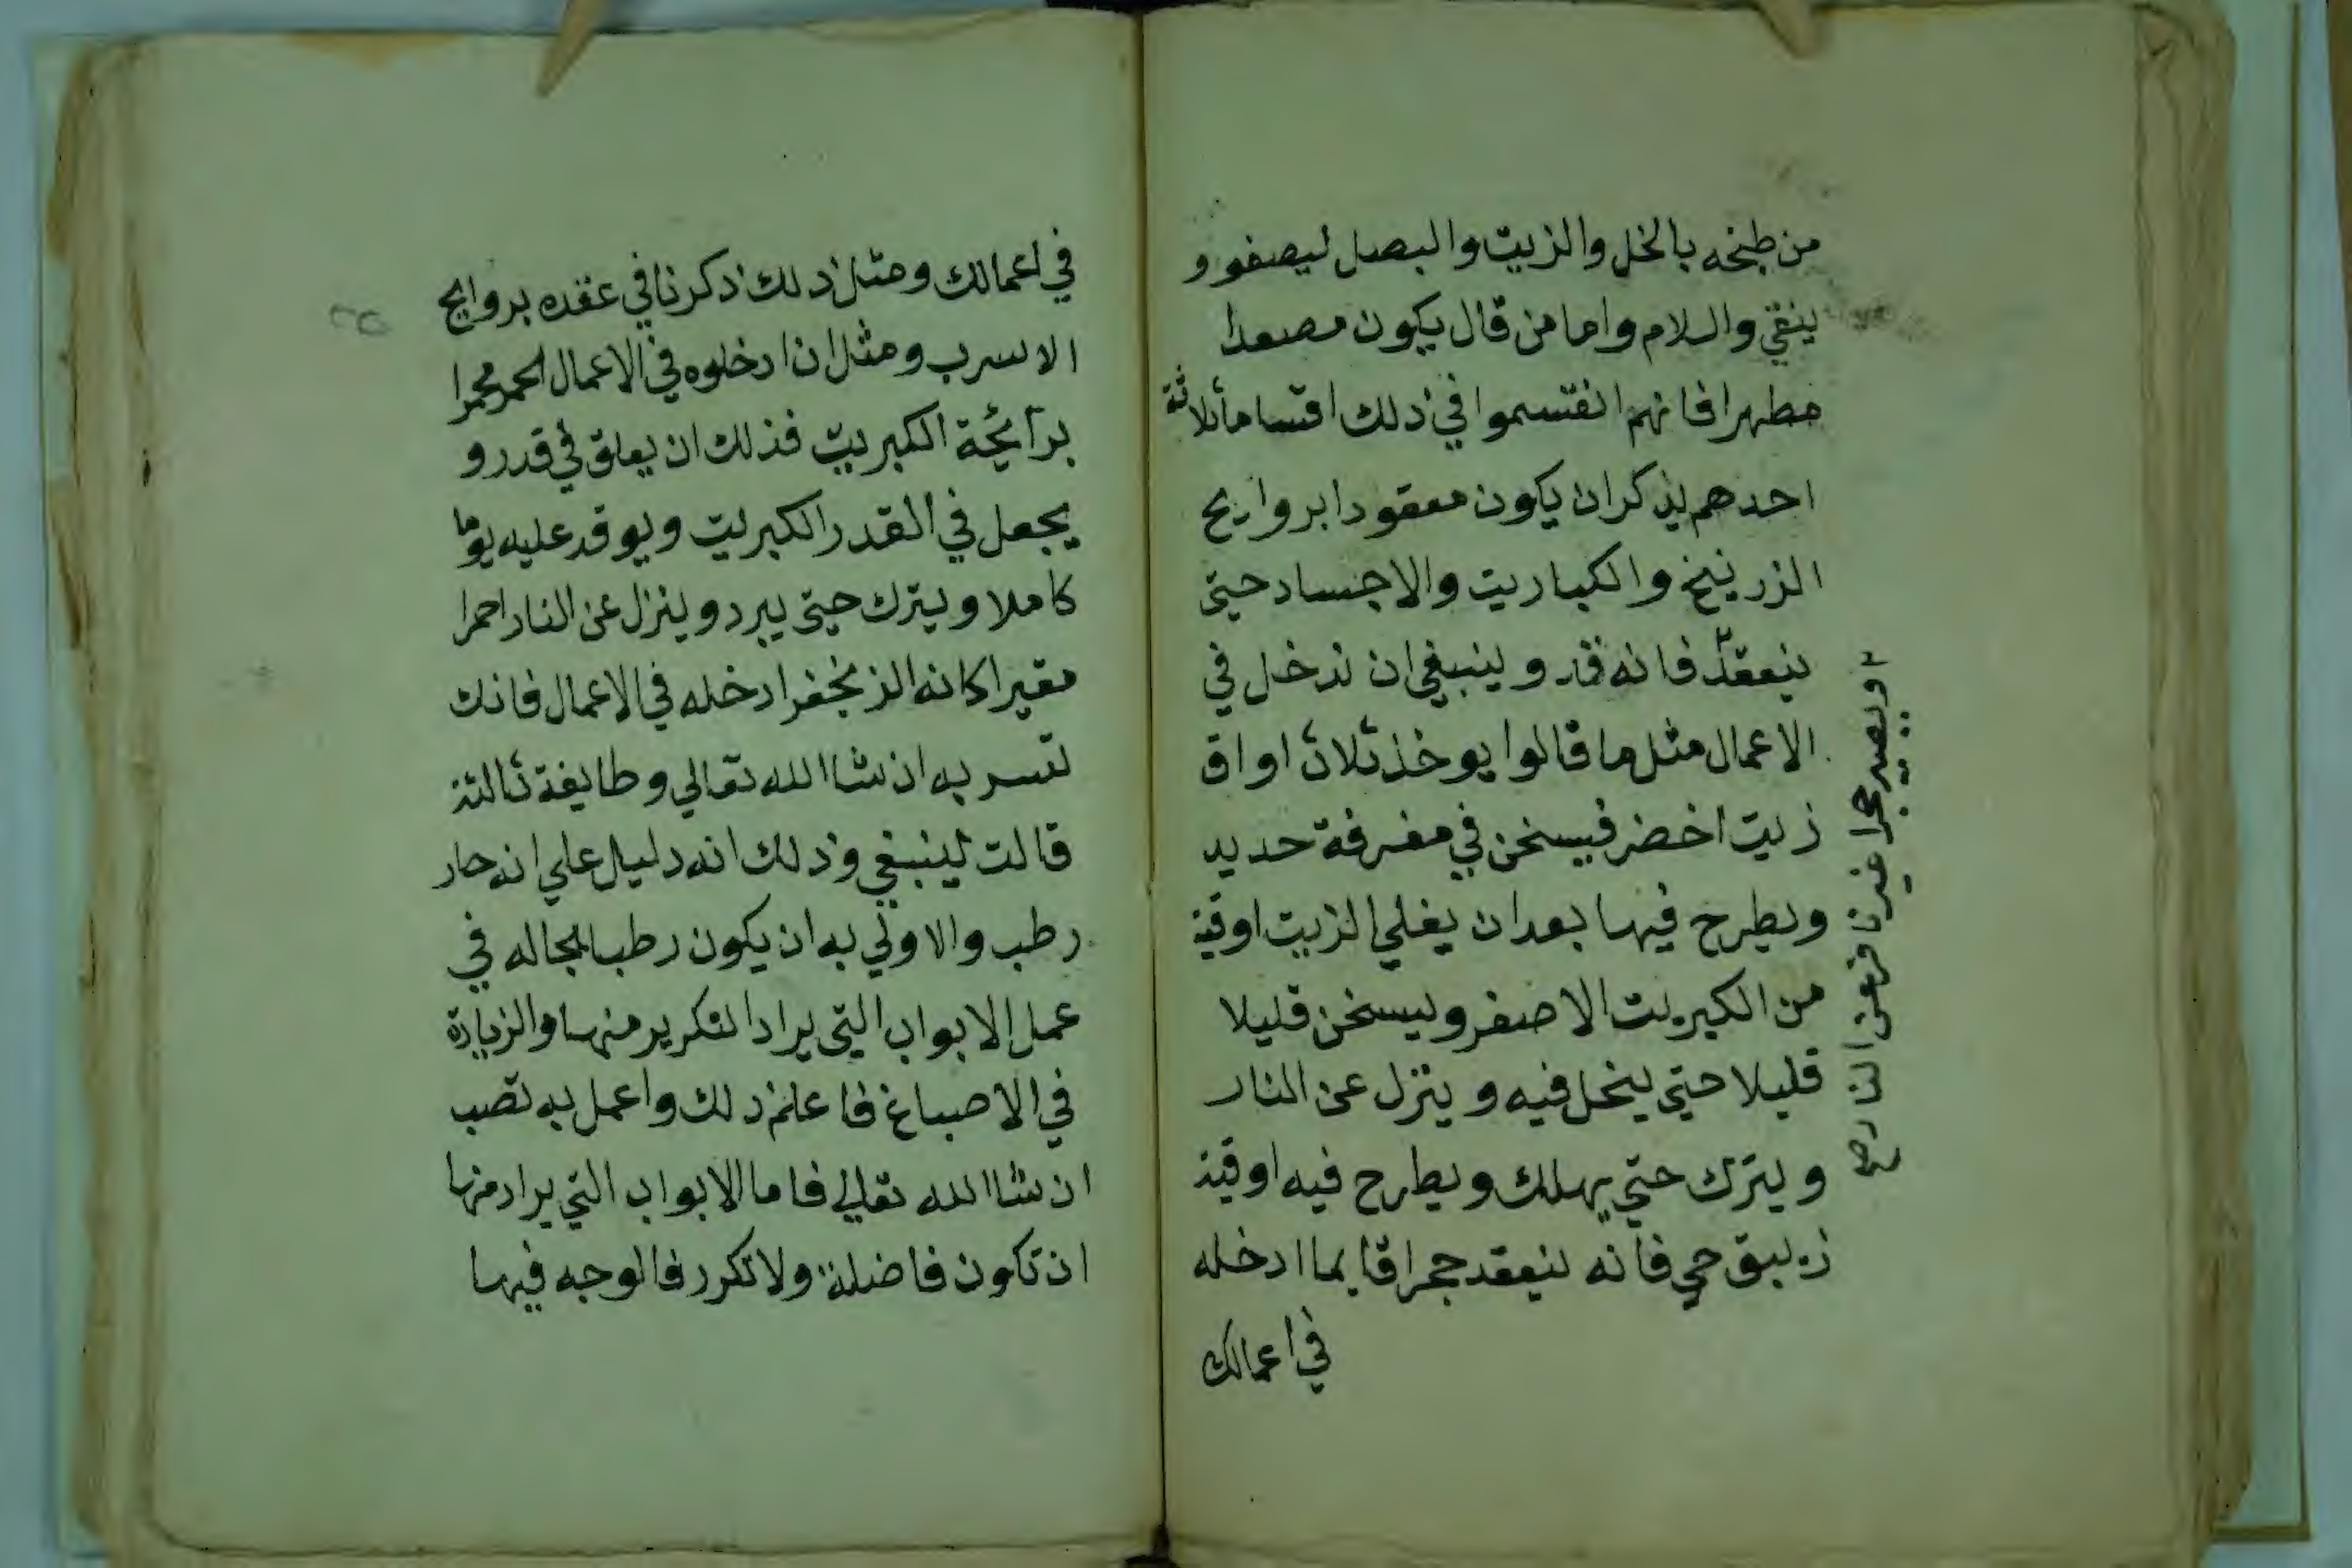 من طبخه بالخل والزيت والبصل ليصفو و
ينقي والسلام واما من قال يكون مصعدا
مطهرا فانهم انقسموا في ذلك اقساما ثلاثة
احدهم يذكر ان يكون معقودا بروايح
الزرنيخ والكباريت والاجساد حتى
ينعقد فانه قد وينبغي ان ندخل في
الاعمال مثل ما قالوا يوخذ ثلاث اواق
زيت اخضر فيسخن في مغرفة حديد
ويطرح فيها بعد ان يغلي الزيت اوقية
من الكبريت الاصفر ويسخن قليلا
قليلا حتي ينحل فيه وينزل عن النار
ويترك حتي يهلك ويطرح فيه اوقية
زيبق حي فانه ينعقد حجرا قايما ادخله
في اعمالك
ويصير حجرا غير نافر عن النار صح
في اعمالك ومثل ذلك ذكرنا في عقده بروايح
الاسرب ومثل ان ادخلوه في الاعمال الحمر محمرا
برآئحة الكبريت فذلك ان يعلق في قدر و
يجعل في القدر الكبريت ويوقد عليه يوما
كاملا ويترك حتى يبرد وينزل عن النار احمرا
مقيرا كانه الزنجفر ادخله في الاعمال فانك
تسر به ان شا الله تعالي وطايفة ثالثة
قالت ينبغي وذلك انه دليل علي انه حار
رطب والاولي به ان يكون رطبا بحاله في
عمل الابواب التي يراد التكرير منها والزيادة
في الاصباغ فاعلم ذلك واعمل به تصب
ان شا الله تعالي فاما الابواب التي يراد منها
ان تكون فاضلة ولا تكرر فالوجه فيها